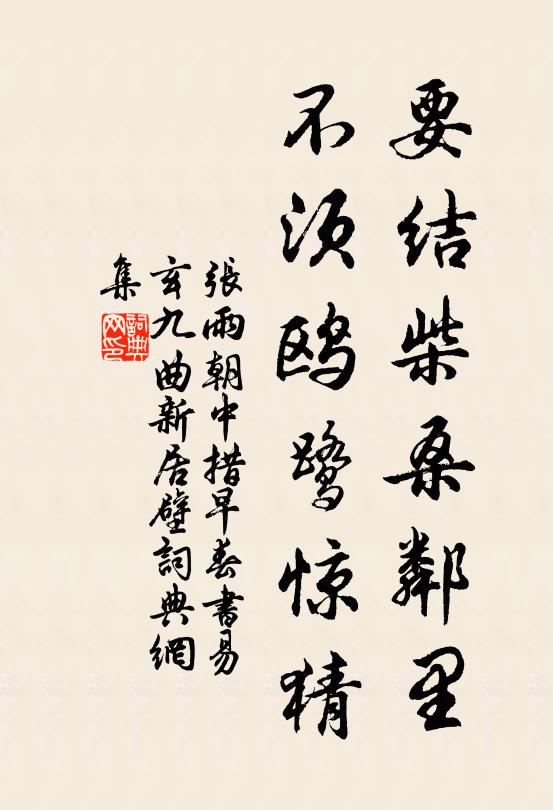 要结柴桑鄰里
不须鸥鹭惊猜
張雨朝中措早春書易
玄九曲新居壁詞典網
集
詞典
网印